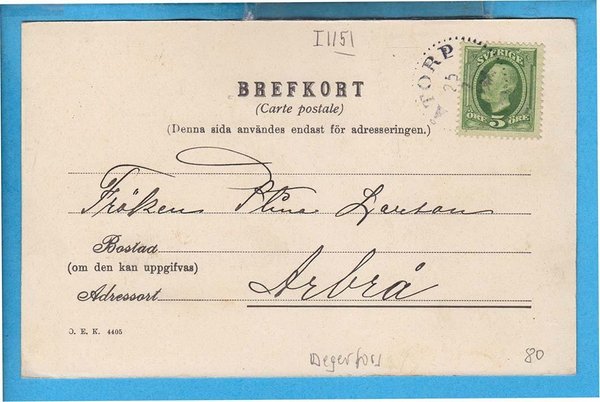 I1151
ATORP
25
SVERIGE
ÖRE 5 ÖRE
BREFKORT
(Carte postale)
(Denna sida användes endast för adresseringen.)
Fröken Stina Larson
Bostad
(om den kan uppgifvas)
Adressort Arbrå
O. E. K. 4405
Degerfors
80